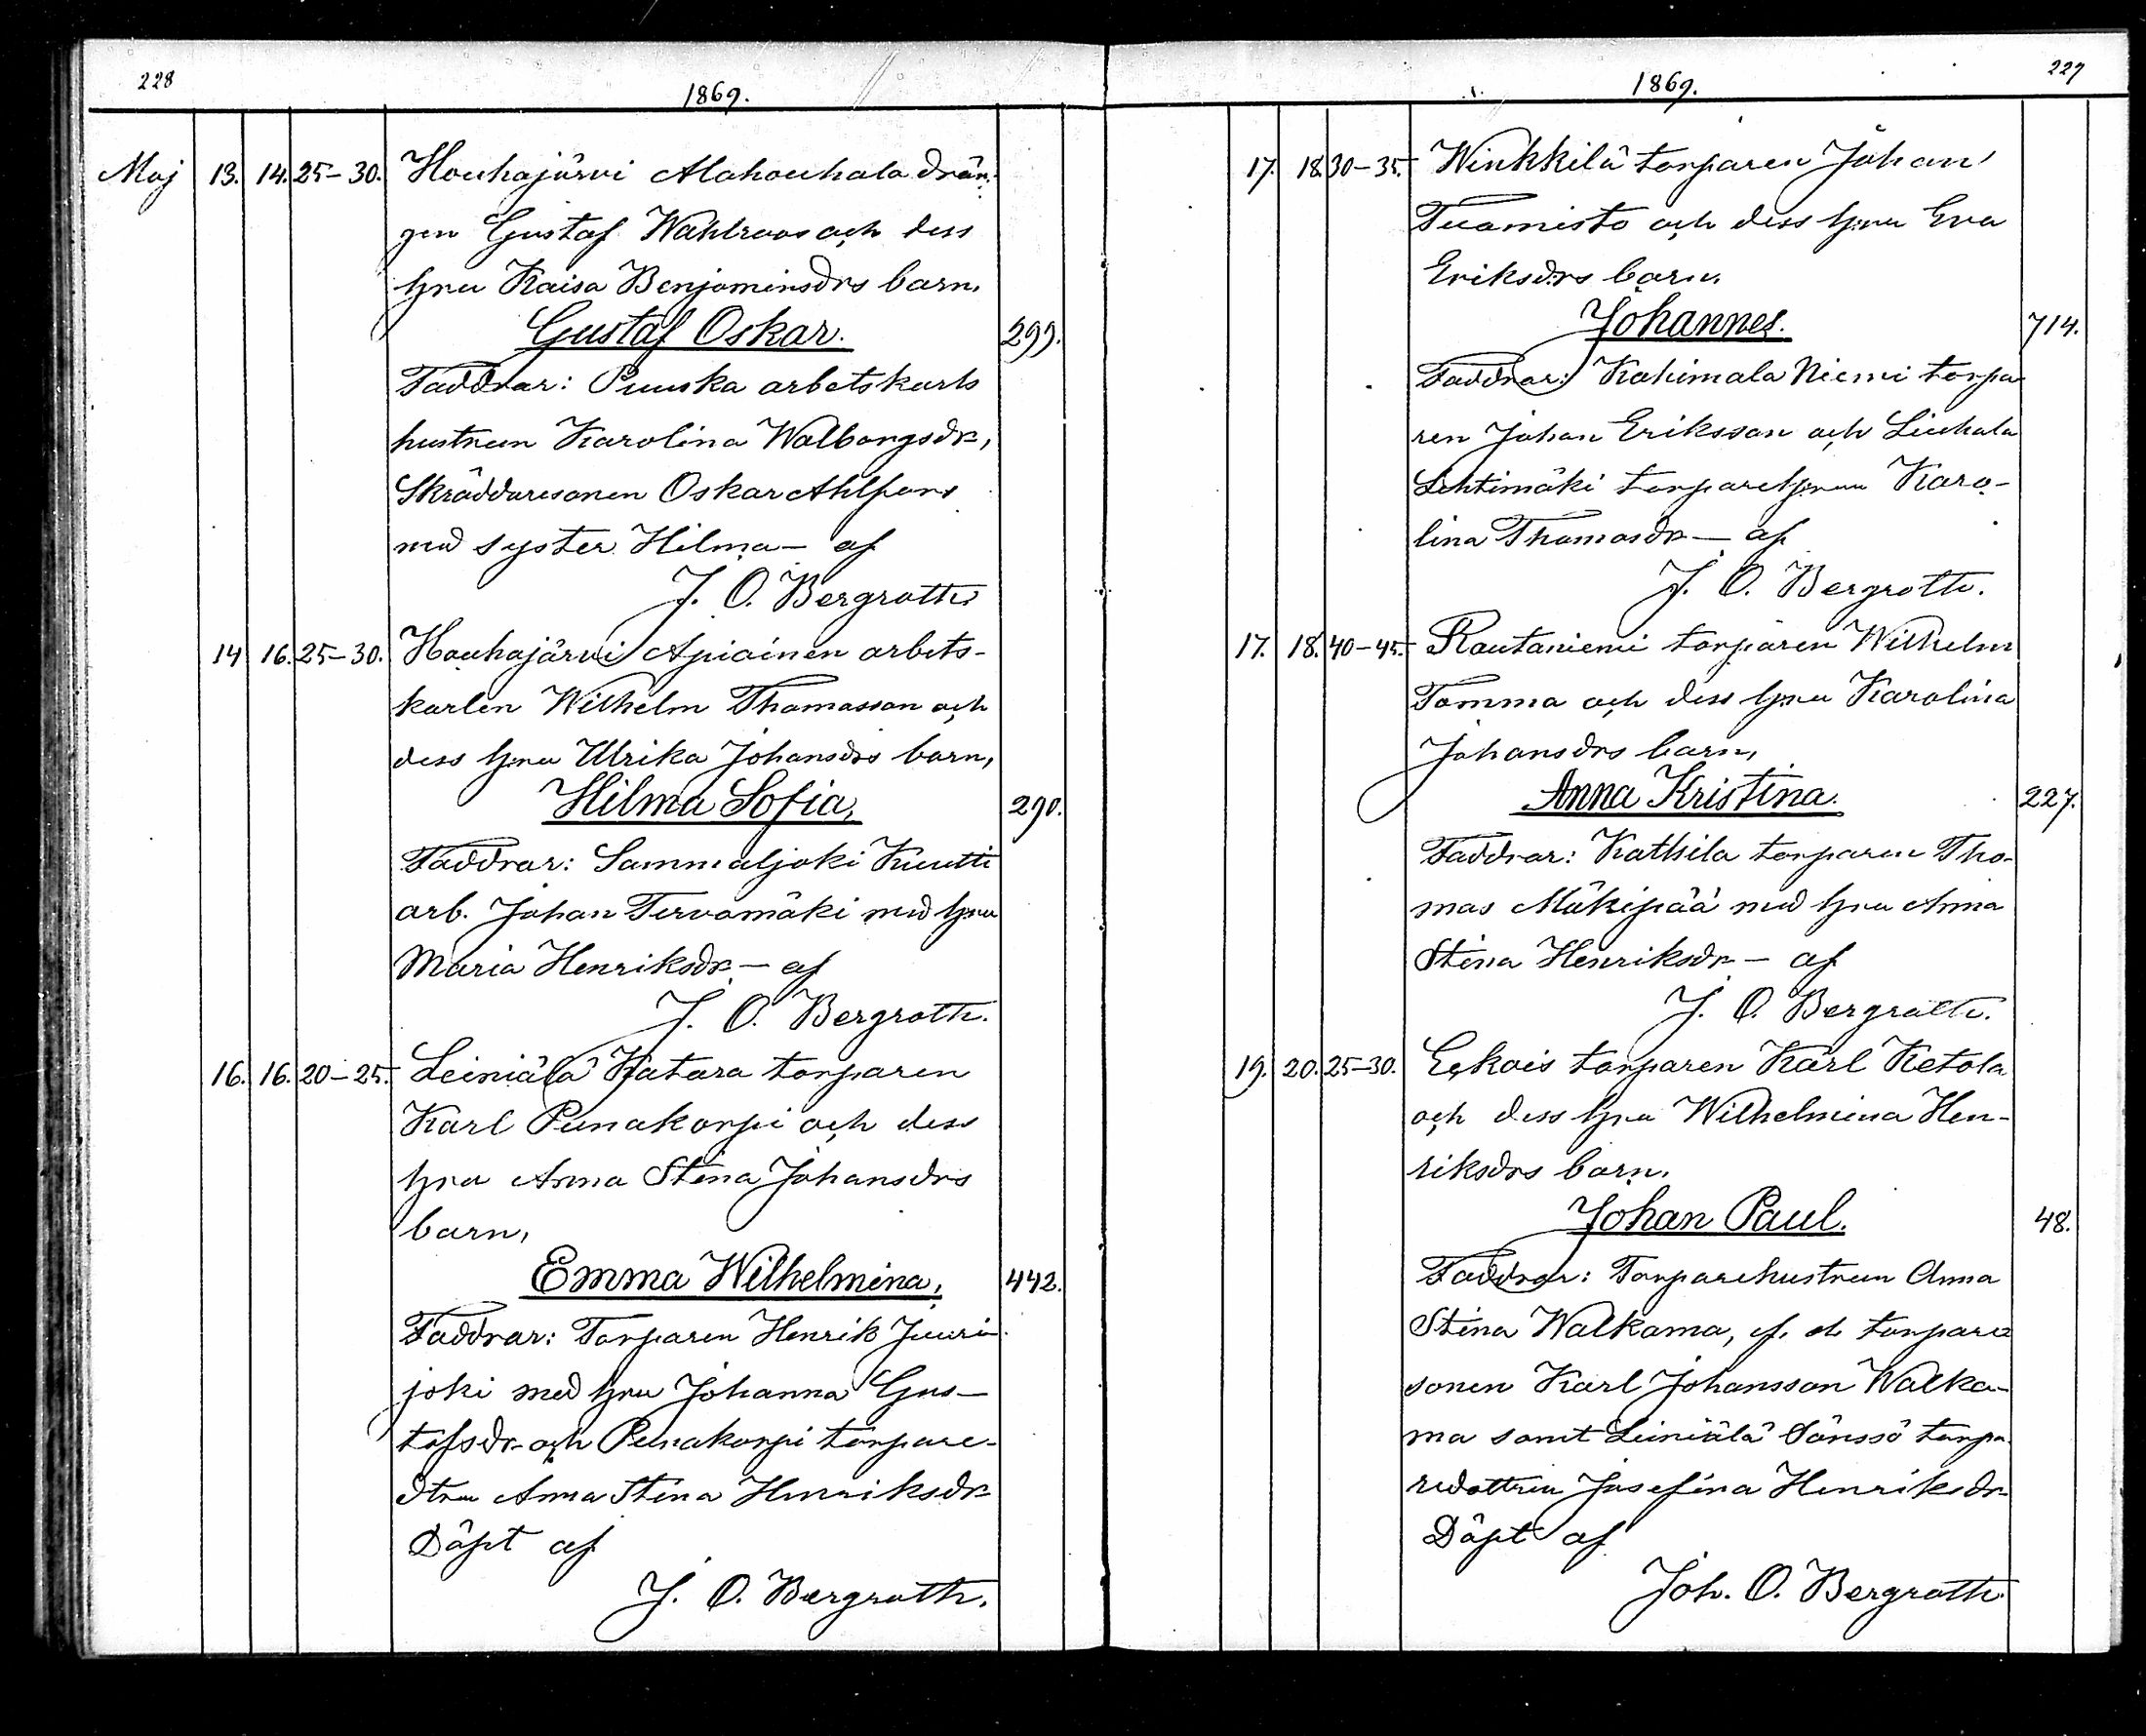 228
1869.
Maj 13. 14. 25-30. Houhajärvi Alahouhala drän-
gen Gustaf Wahlroos och dess
hru Kaisa Benjaminsdrs barn,
Gustaf Oskar. 299.
Faddrar: Puuska arbetskarls
hustrun Karolina Walborgsdr,
Skräddaresonen Oskar Ahlfors
med syster Hilma — af
J. O. Bergroth.
14 16. 25-30. Houhajärvi Apiainen arbets-
karlen Wilhelm Thomasson och
dess hru Ulrika Johansdrs barn,
Hilma Sofia, 290.
Faddrar: Sammaljoki Kuutti
arb. Johan Tervamäki med hru
Maria Henriksdr — af
J. O. Bergroth.
16. 16. 20-25. Leiniälä Katara torparen
Karl Punakorpi och dess
hru Anna Stina Johansdrs
barn,
Emma Wilhelmina, 442.
Faddrar: Torparen Henrik Juuri-
joki med hru Johanna Gus-
tafsdr och Punakorpi torpare-
dtrn Anna Stina Henriksdr
Döpt af
J. O. Bergroth.
1869. 229
17. 18. 30-35. Winkkilä torparen Johan
Tuomisto och dess hru Eva
Eriksdrs barn,
Johannes. 714.
Faddrar: Kahimala Niemi torpa-
ren Johan Eriksson och Liuhala
Lehtimäki torparehrun Karo-
lina Thomasdr — af
J. O. Bergroth.
17. 18. 40-45. Rautaniemi torparen Wilhelm
Tomma och dess hru Karolina
Johansdrs barn,
Anna Kristina. 227.
Faddrar: Kathila torparen Tho-
mas Mäkipää med hru Anna
Stina Henriksdr — af
J. O. Bergroth.
19. 20. 25-30. Ekois torparen Karl Ketola
och dess hru Wilhelmina Hen-
riksdrs barn,
Johan Paul. 48.
Faddrar: Torparehustrun Anna
Stina Walkama, torpare
sonen Karl Johansson Walka-
ma samt Leiniälä torpa-
redottren Josefina Henriksdr
Döpt af
Joh. O. Bergroth.